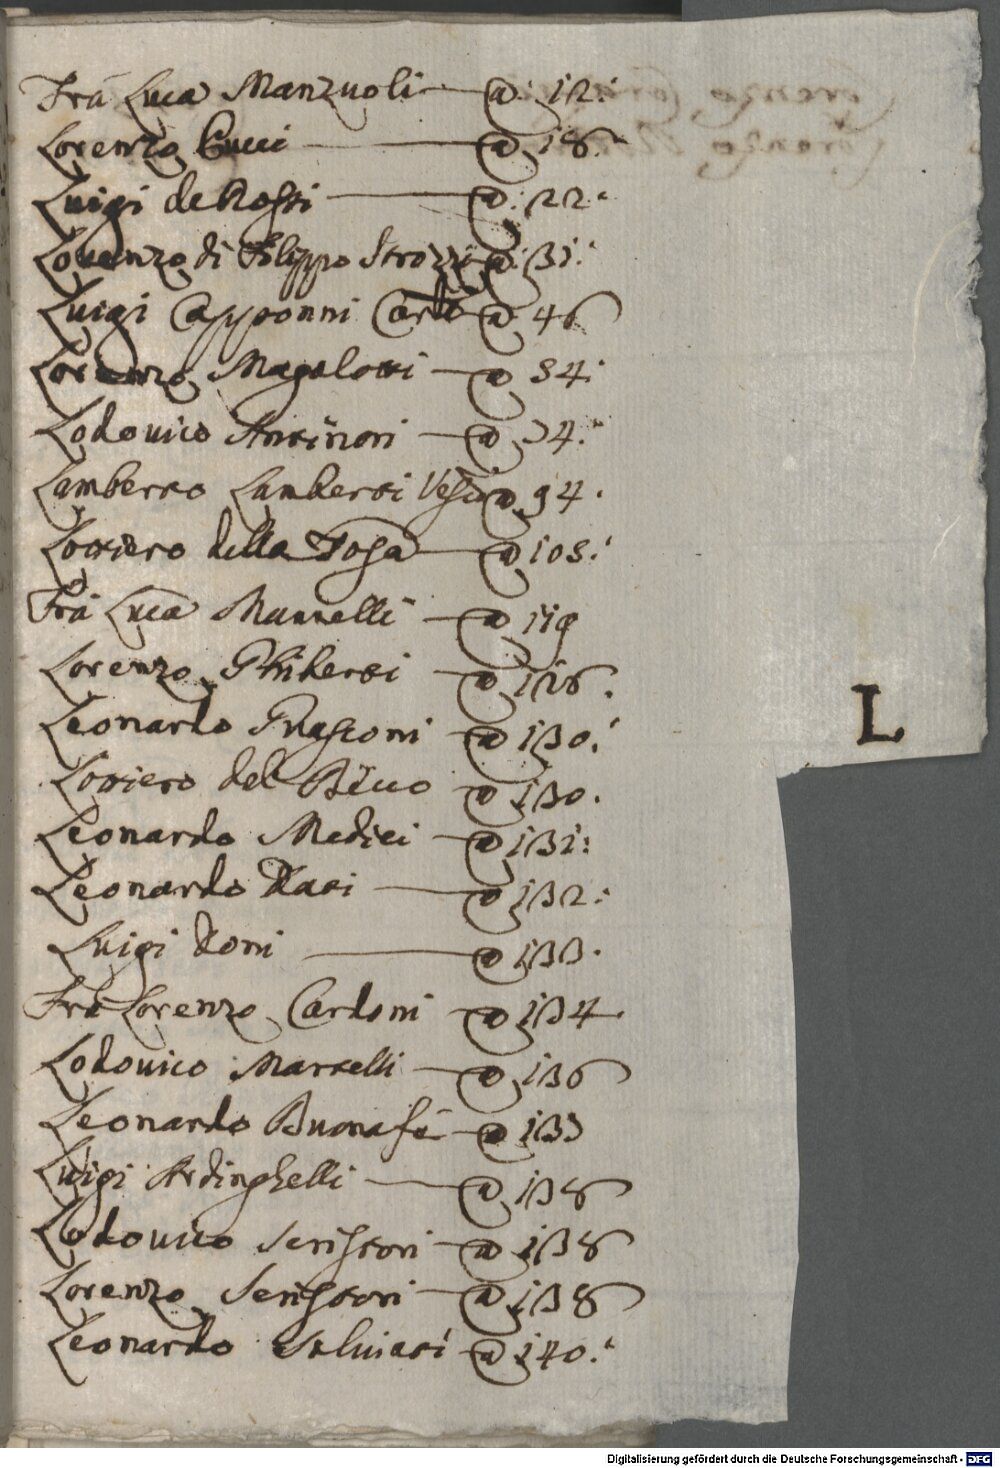 Fra Luca Manzuoli @ 12.
Lorenzo Pucci @ 18.
Luigi de Rossi @ 22.
Lorenzo di Filippo Strozzi @ 31.
Luigi Capponni Card @ 46
Lorenzo Magalotti @ 54.
Lodouico Antinori @ 74.
Lamberto Lamberti @ 94.
Lottiero della Tosa @ 105.
Fra Luca Mannelli @ 119
Lorenzo Ghiberti @ 126.
Leonardo Guasconi @ 130.
Lottiero del @ 130.
Leonardo Medici @ 131:
Leonardo Dati @ 132:
Luigi Doni @ 133.
Fra Lorenzo Cardoni @ 134
Lodouico Martelli @ 136
Leonardo Buonafè @ 137
Luigi Ardinghelli @ 138
Lodouico Seristori @ 138
Lorenzo Seristori @ 138
Leonardo Saluiati @ 140.
L
Digitalisierung gefördert durch die Deutsche Forschungsgemeinschaft - DFG